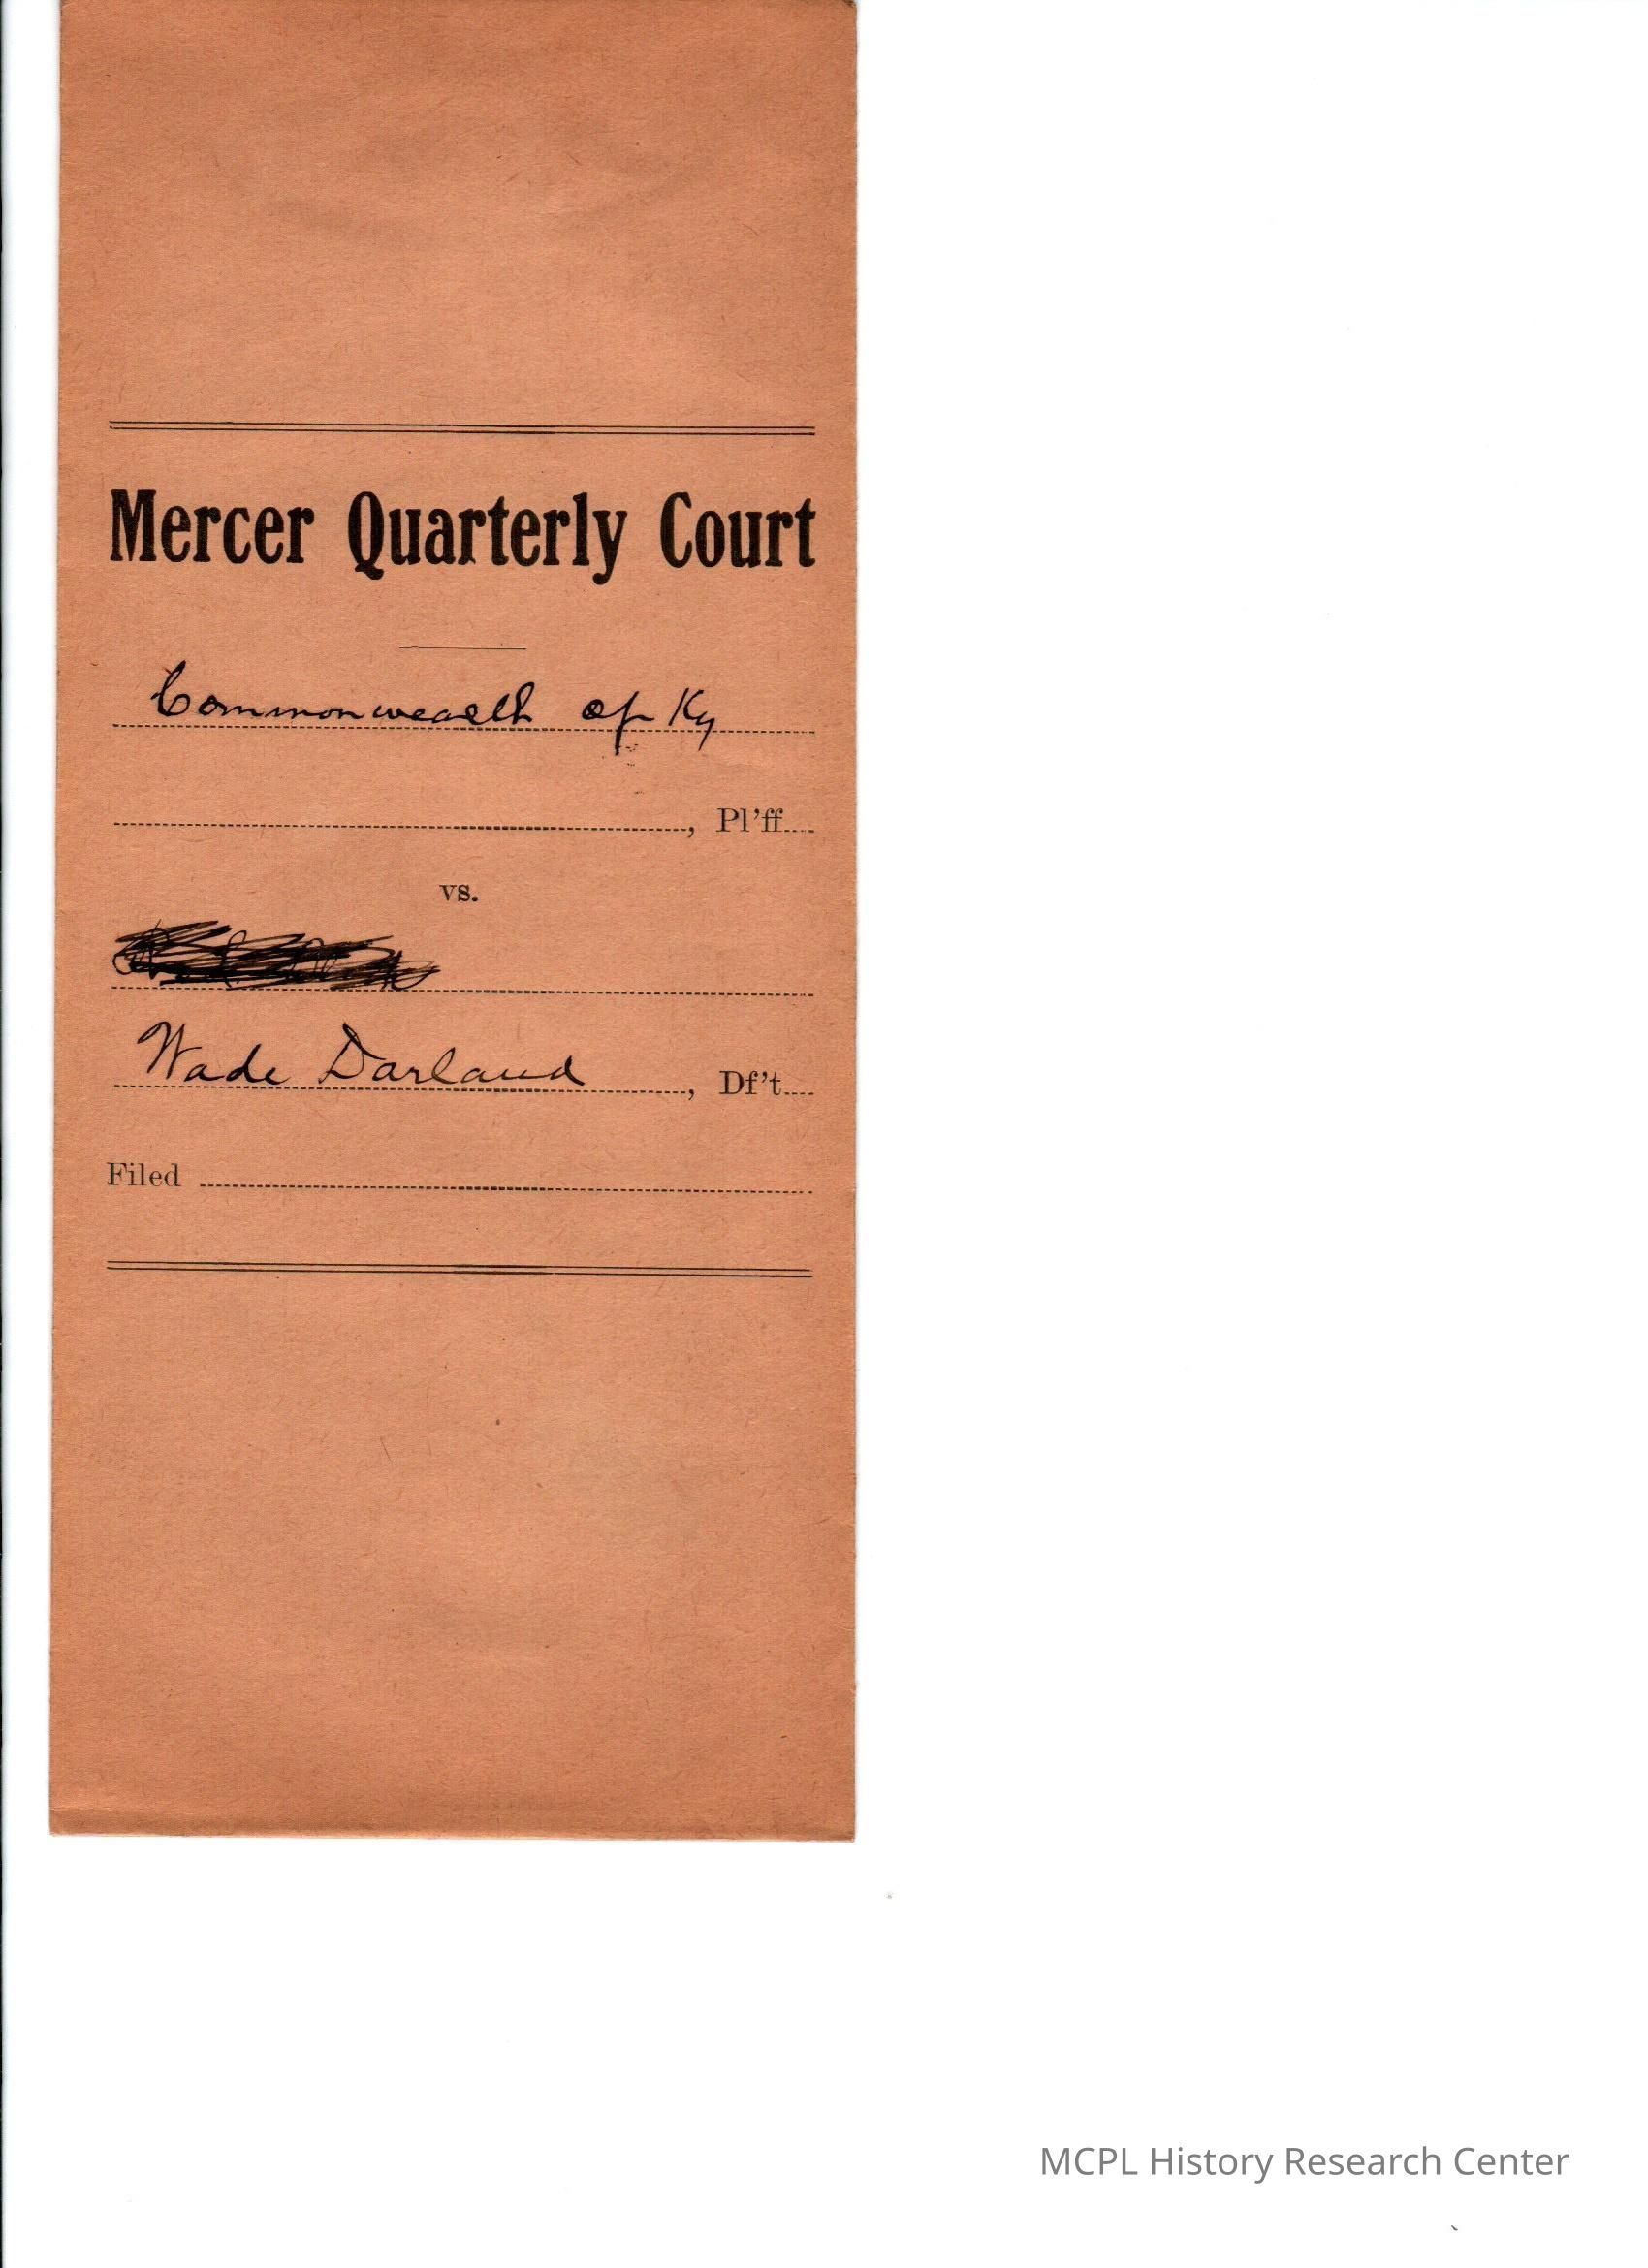 Mercer Quarterly Court
Commonwealth of Ky
, Pl'ff
vs.
Wade Darland, Df't
Filed
MCPL History Research Center